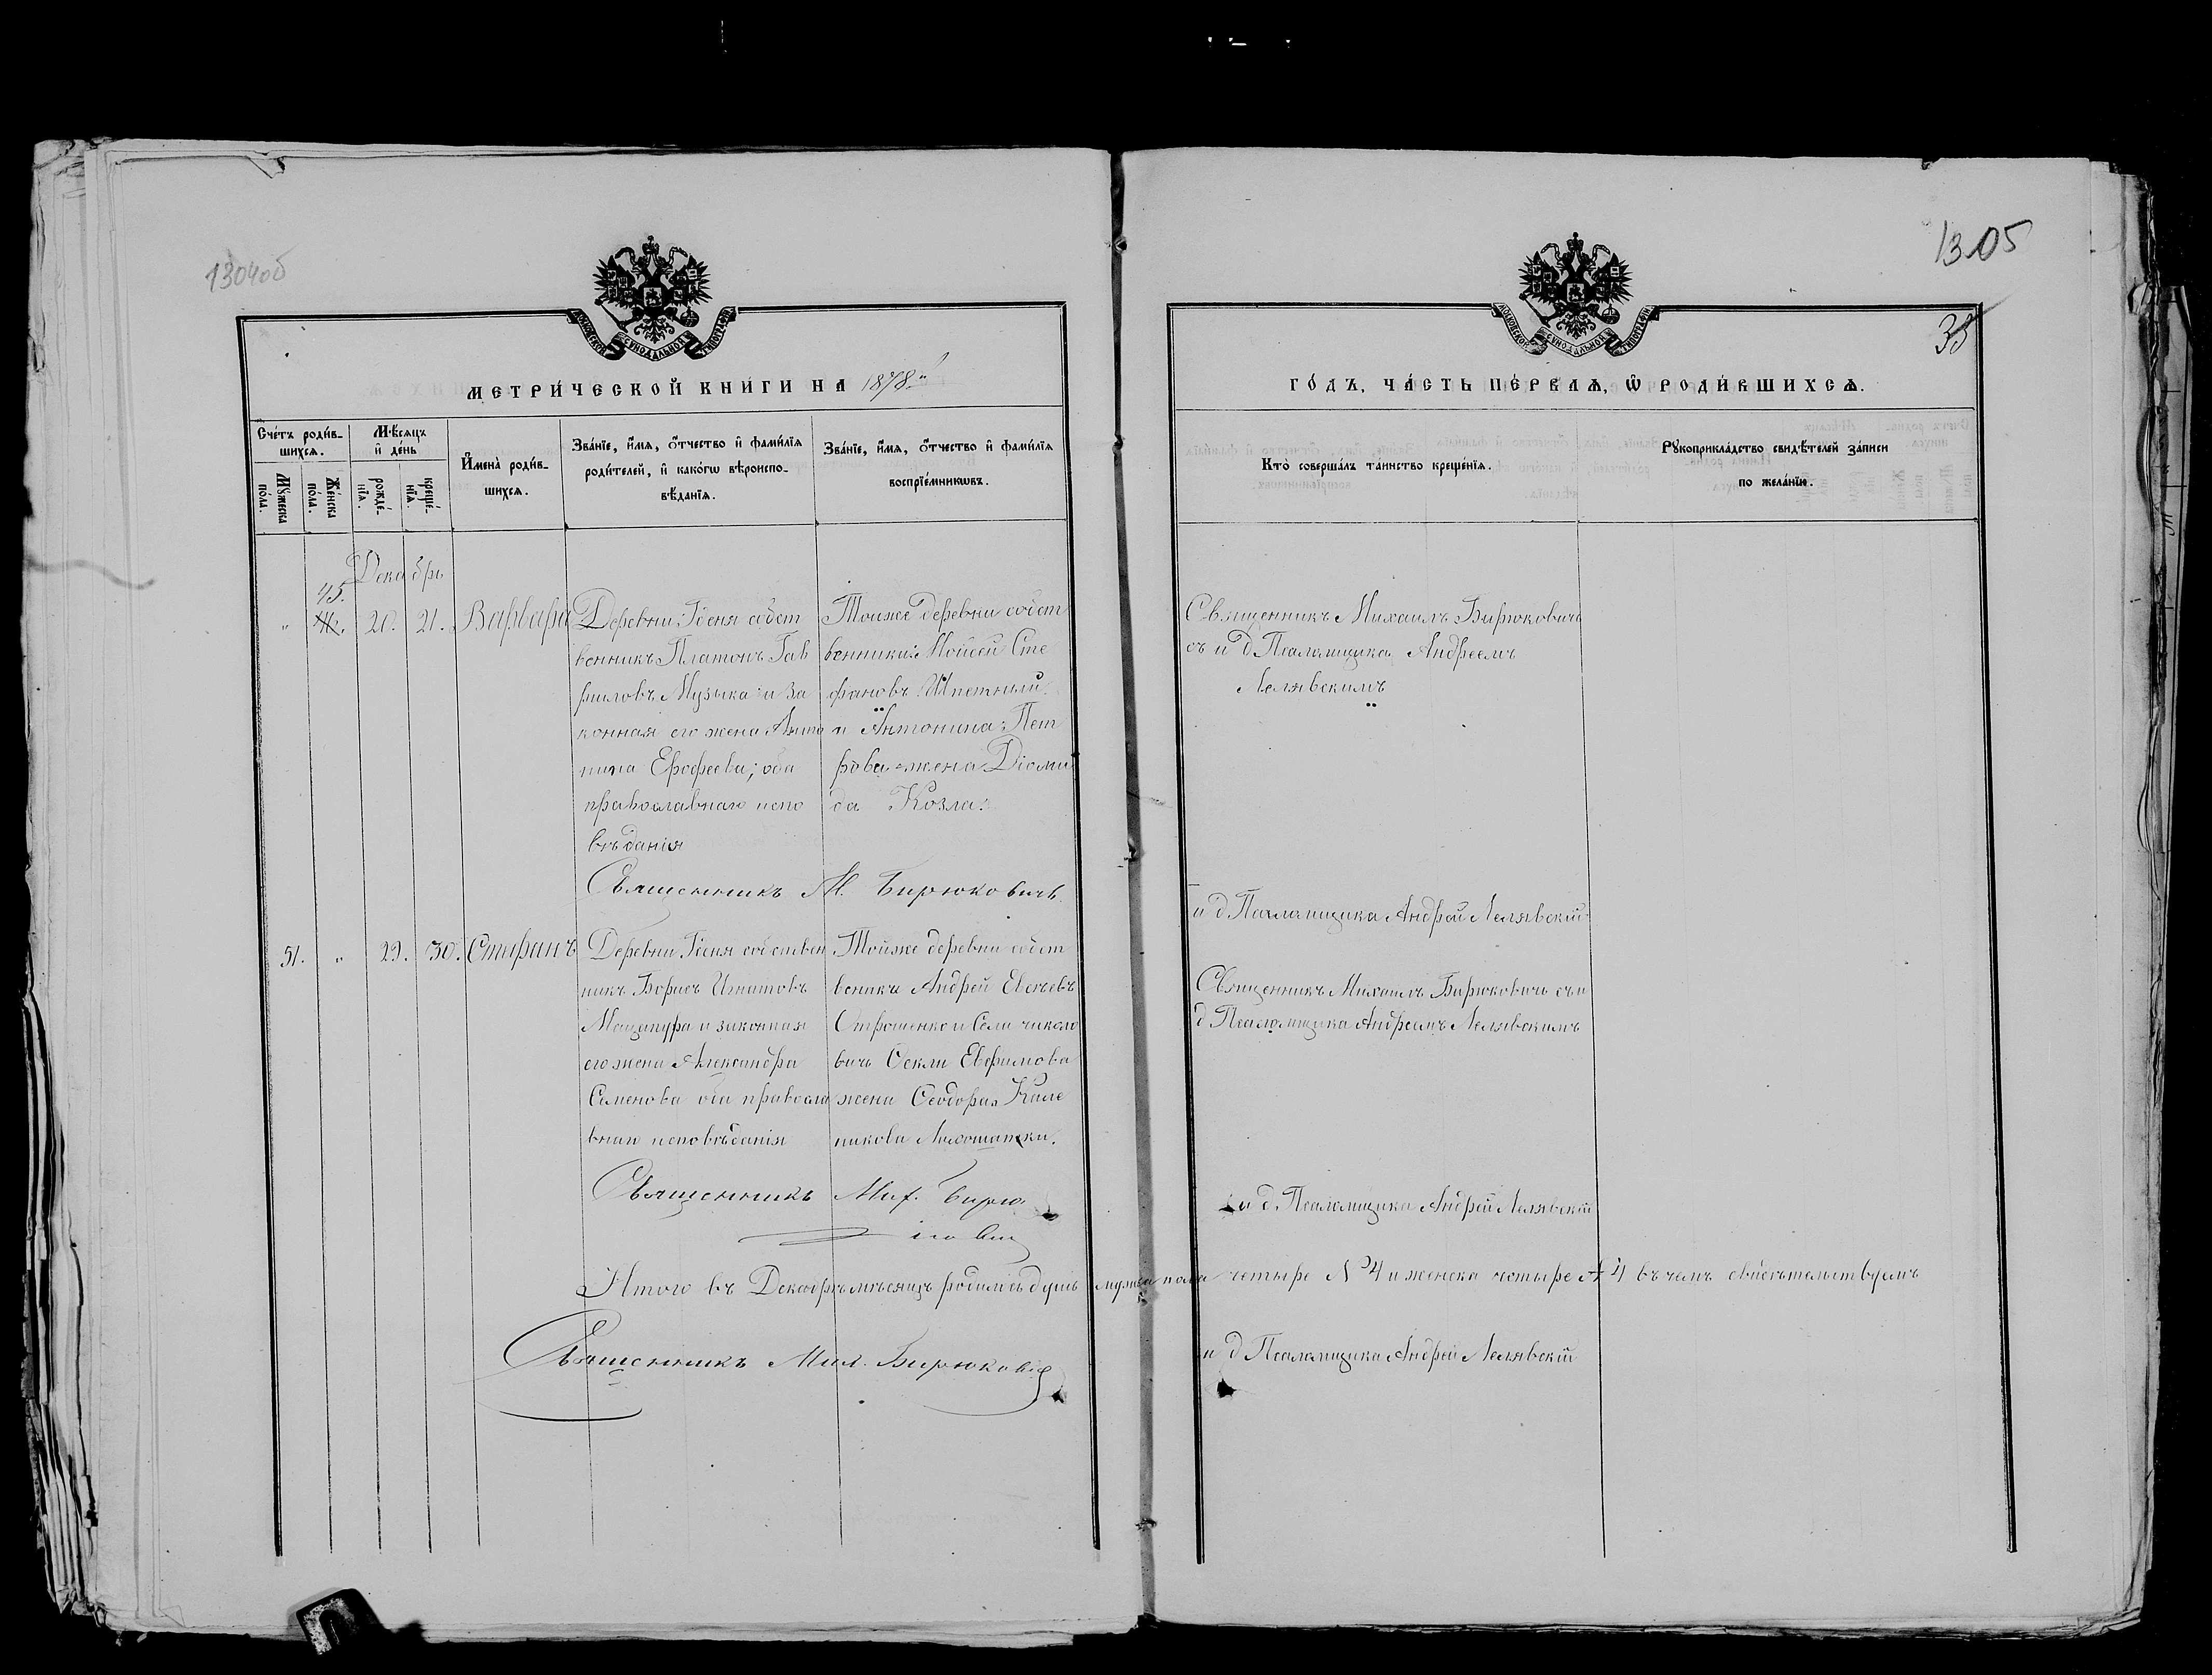 1304об
1305
33
МОСКОВСКОЙ СѴНОДАЛЬНОЙ ТИПОГРАФІИ
МОСКОВСКОЙ СѴНОДАЛЬНОЙ ТИПОГРАФІИ
МЕТРИ́ЧЕСКОЙ КНИ́ГИ НА 1878й
ГО́ДЪ, ЧА́СТЬ ПЕ́РВАѦ, Ѽ РОДИ́ВШИХСѦ.
Сче́тъ роди́в-
шихсѧ.
Мꙋ́жеска
по́ла.
Же́нска
по́ла.
Мѣ́сѧцъ
и҆ де́нь
рожде́-
нїѧ.
креще́-
нїѧ.
И҆мена̀ роди́в-
шихсѧ.
Зва́нїе, и҆́мѧ, ѻ҆́тчество и҆ фами́лїѧ
роди́телей, и҆ како́гѡ вѣроиспо-
вѣ́данїѧ.
Зва́нїе, и҆́мѧ, ѻ҆́тчество и҆ фами́лїѧ
воспрїе́мникѡвъ.
Кто̀ соверша́лъ та́инство креще́нїѧ.
Рꙋкоприкла́дство свидѣ́телей за́писи
по жела́нїю.
Декабрь
45.
" 46. 20. 21. Варвара
Деревни Гденя собст
венникъ Платонъ Гав
риловъ Музыка и за
конная его жена Анто
нина Ерофеева; оба
православнаго испо
вѣданія
Тойже деревни собст
венники: Мойсей Сте
фановъ Шпетный
и Антонина Пет
рова жена Діоми
да Козла.
Священникъ Михаилъ Бирюковичъ
съ и д Псаломщика Андреемъ
Лелявскимъ
Священникъ М. Бирюковичъ
и д Псаломщика Андрей Лелявскій
51. " 29. 30. Стефанъ
Деревни Гденя собствен
никъ Борисъ Игнатовъ
Мащапура и законная
его жена Александра
Семенова оба правосла
внаго исповѣданія
Тойже деревни собст
венникъ Андрей Евсѣевъ
жена Ѳеодора
Священникъ Михаилъ Бирюковичъ съ и
д Псаломщика Андреемъ Лелявскимъ
Священникъ Мих. Бирю
ковичъ
и д. Псаломщика Андрей Лелявскій
Итого въ Декабрѣ мѣсяцѣ родилось душъ мужеска пола четыре N 4 и женска четыре N 4 въ чемъ свидѣтельствуемъ
Священникъ Мих. Бирюковичъ
и д Псаломщика Андрей Лелявскій